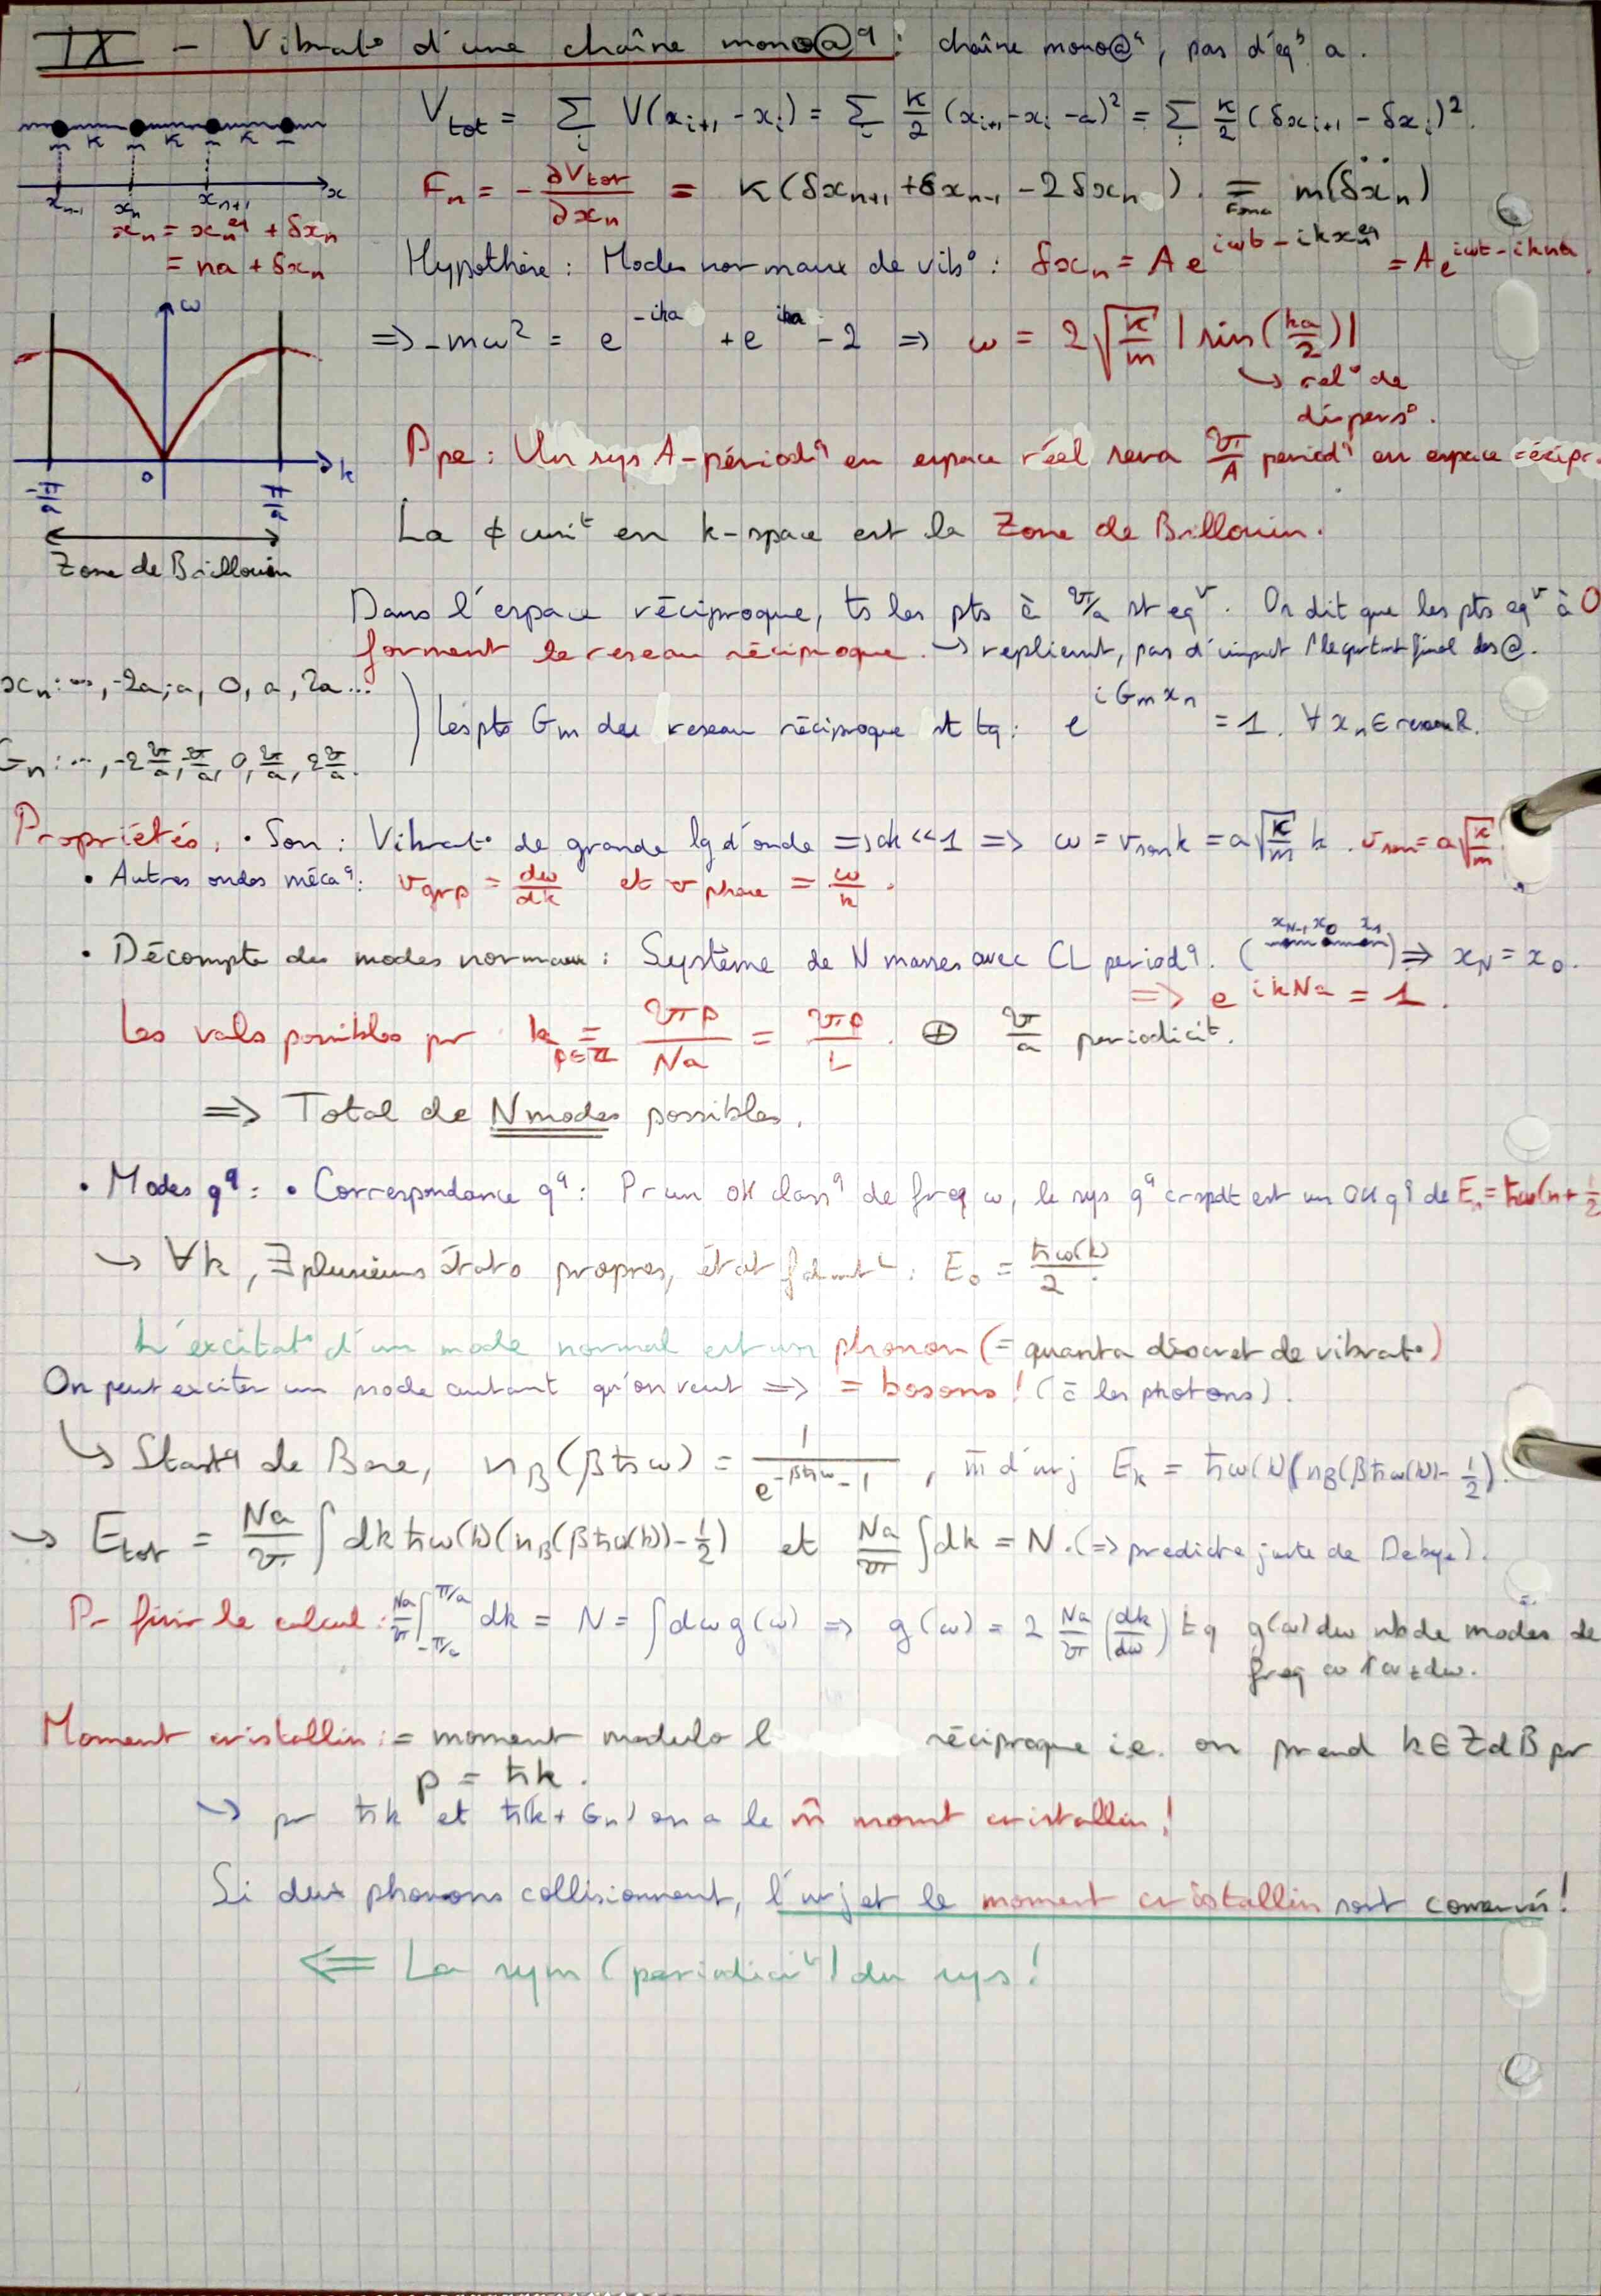 IX - Vibrat° d'une chaîne mono@q : chaîne mono@q, pas d'eq^b a.
V_tot = Σ_i V(x_{i+1} - x_i) = Σ_i κ/2 (x_{i+1} - x_i - a)² = Σ_i κ/2 (δx_{i+1} - δx_i)².
κ κ κ
m m m m
x_{n-1} x_n x_{n+1} x
F_n = - ∂V_tot/∂x_n = κ(δx_{n+1} + δx_{n-1} - 2δx_n). = m(δẍ_n)
x_n = x_n^{eq} + δx_n
= na + δx_n
Hypothèse : Modes normaux de vib° : δx_n = A e^{iωt - ikx_n^{eq}} = A e^{iωt - ikna}.
⇒ -mω² = e^{-ika} + e^{ika} - 2 ⇒ ω = 2√(κ/m) |sin(ka/2)|
↳ rel° de
dispers°.
ω
0 k
-π/a π/a
Zone de Brillouin
Ppe : Un sys A-périodq en espace réel sera 2π/A périodq en espace récipr.
La ¢ unit en k-space est la Zone de Brillouin.
Dans l'espace réciproque, ts les pts à 2π/a st eq^v. On dit que les pts eq^v à 0
forment le reseau réciproque. → replient, pas d'impact / le final des @.
x_n : ..., -2a, -a, 0, a, 2a...
les pts G_m du reseau réciproque st tq : e^{iG_m x_n} = 1. ∀ x_n ∈ reseau R.
G_n : ..., -2 2π/a, -2π/a, 0, 2π/a, 2 2π/a.
Propriétés. • Son : Vibrat° de grande lg d'onde ⇒ ak << 1 ⇒ ω = v_son k = a√(κ/m) k. v_son = a√(κ/m)
• Autres ondes mécaq : v_grp = dω/dk et v_phase = ω/k.
• Décompte des modes normaux : Système de N masses avec CL periodq. (x_{N-1} x_0 x_1) ⇒ x_N = x_0.
⇒ e^{ikNa} = 1.
Les vals possibles pr k =_{p∈ℤ} 2πp/Na = 2πp/L. ⊕ 2π/a periodicit.
⇒ Total de N modes possibles.
• Modes qq : • Correspondance qq : Pr un OH classq de freq ω, le sys qq crspdt est un OH qq de E_n = ħω(n + 1/2
↪ ∀k, ∃ plusieurs états propres, état fdmt^L : E_0 = ħω(k)/2.
L'excitat° d'un mode normal est un phonon (= quanta discret de vibrat°)
On peut exciter un mode autant qu'on veut ⇒ = bosons ! (c̄ les photons).
↪ Statq de Bose, n_B(βħω) = 1/(e^{-βħω} - 1), m̄ d'nrj E_k = ħω(k)(n_B(βħω(k)) - 1/2).
→ E_tot = Na/2π ∫ dk ħω(k)(n_B(βħω(k)) - 1/2) et Na/2π ∫dk = N. (⇒ predict° juste de Debye).
Pr finir le calcul : Na/2π ∫_{-π/a}^{π/a} dk = N = ∫dω g(ω) ⇒ g(ω) = 2 Na/2π (dk/dω) tq g(ω)dω nb de modes de
freq ω / ω + dω.
Moment cristallin : = moment modulo l réciproque i.e. on prend k ∈ ZdB pr
p = ħk.
↪ pr ħk et ħ(k + G_n) on a le m̂ momt cristallin !
Si deux phonons collisionnent, l'nrj et le moment cristallin sont conservés !
⇐ La sym (periodicit) du sys !